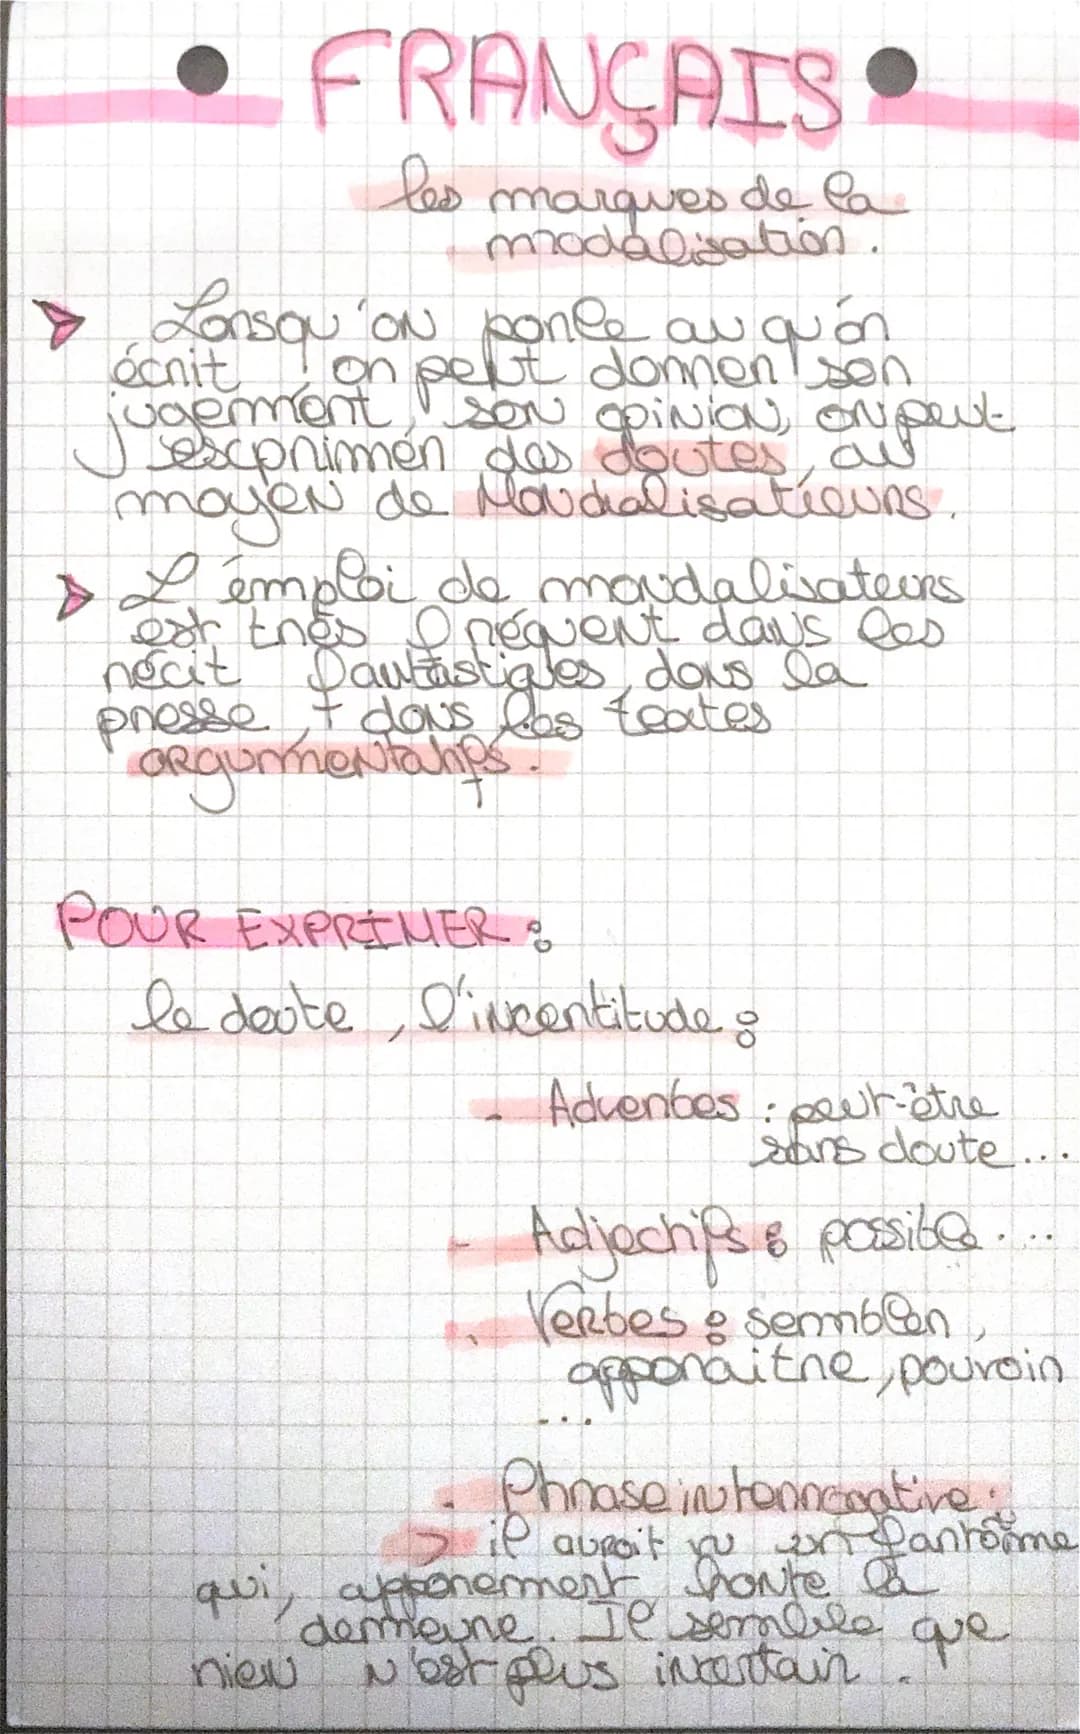 FRANÇAIS
les marques de la
modalisation.
Lorsqu'on parle ou qu'on
écrit, on peut donner son
jugement, son opinion, on peut
escprimer des doutes, au
moyen de Moudalisatieurs.
L'emploi de moudalisateurs
est très fréquent dans les
récit fantastiques, dans la
presse, + dans les textes
argumentatifs.
POUR EXPRIMER :
le doute, l'incertitude :
- Adverbes : peut-être
sans doute...
- Adjectifs : possible...
- Verbes : sembler,
apparaitre, pouvoir
...
- Phrase interrogative :
> il aurait vu un fantôme
qui, apparement hante la
demeure. Il semble que
rien n'est plus incertain.